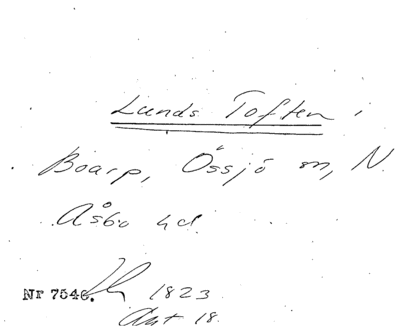 Lunds Toften i
Boarp, Össjö sn, N.
Åsbo hd.
Nr 7546. 1823
Akt 18.